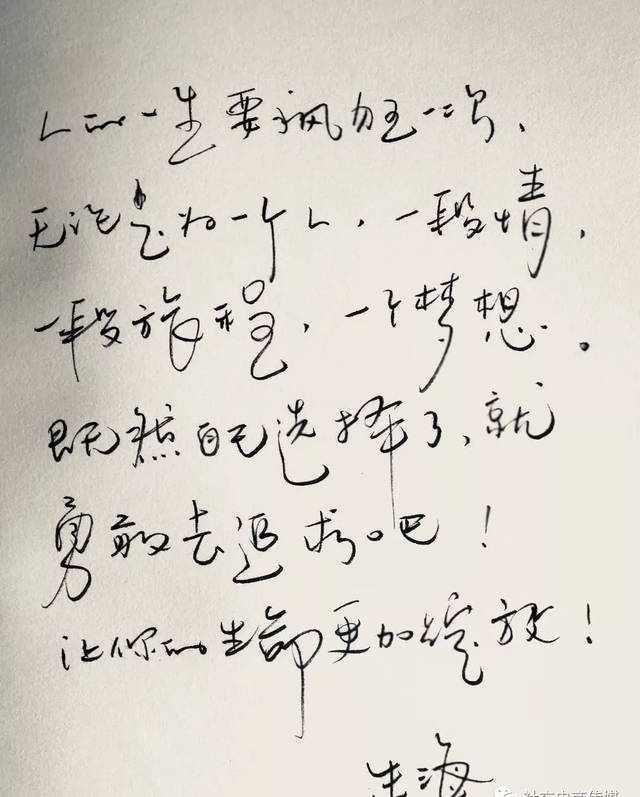 人的一生要疯狂一次、
无论是为一个人，一段情，
一段旅程，一个梦想。
既然自己选择了，就
勇敢去追求吧！
让你的生命更加绽放！
生海